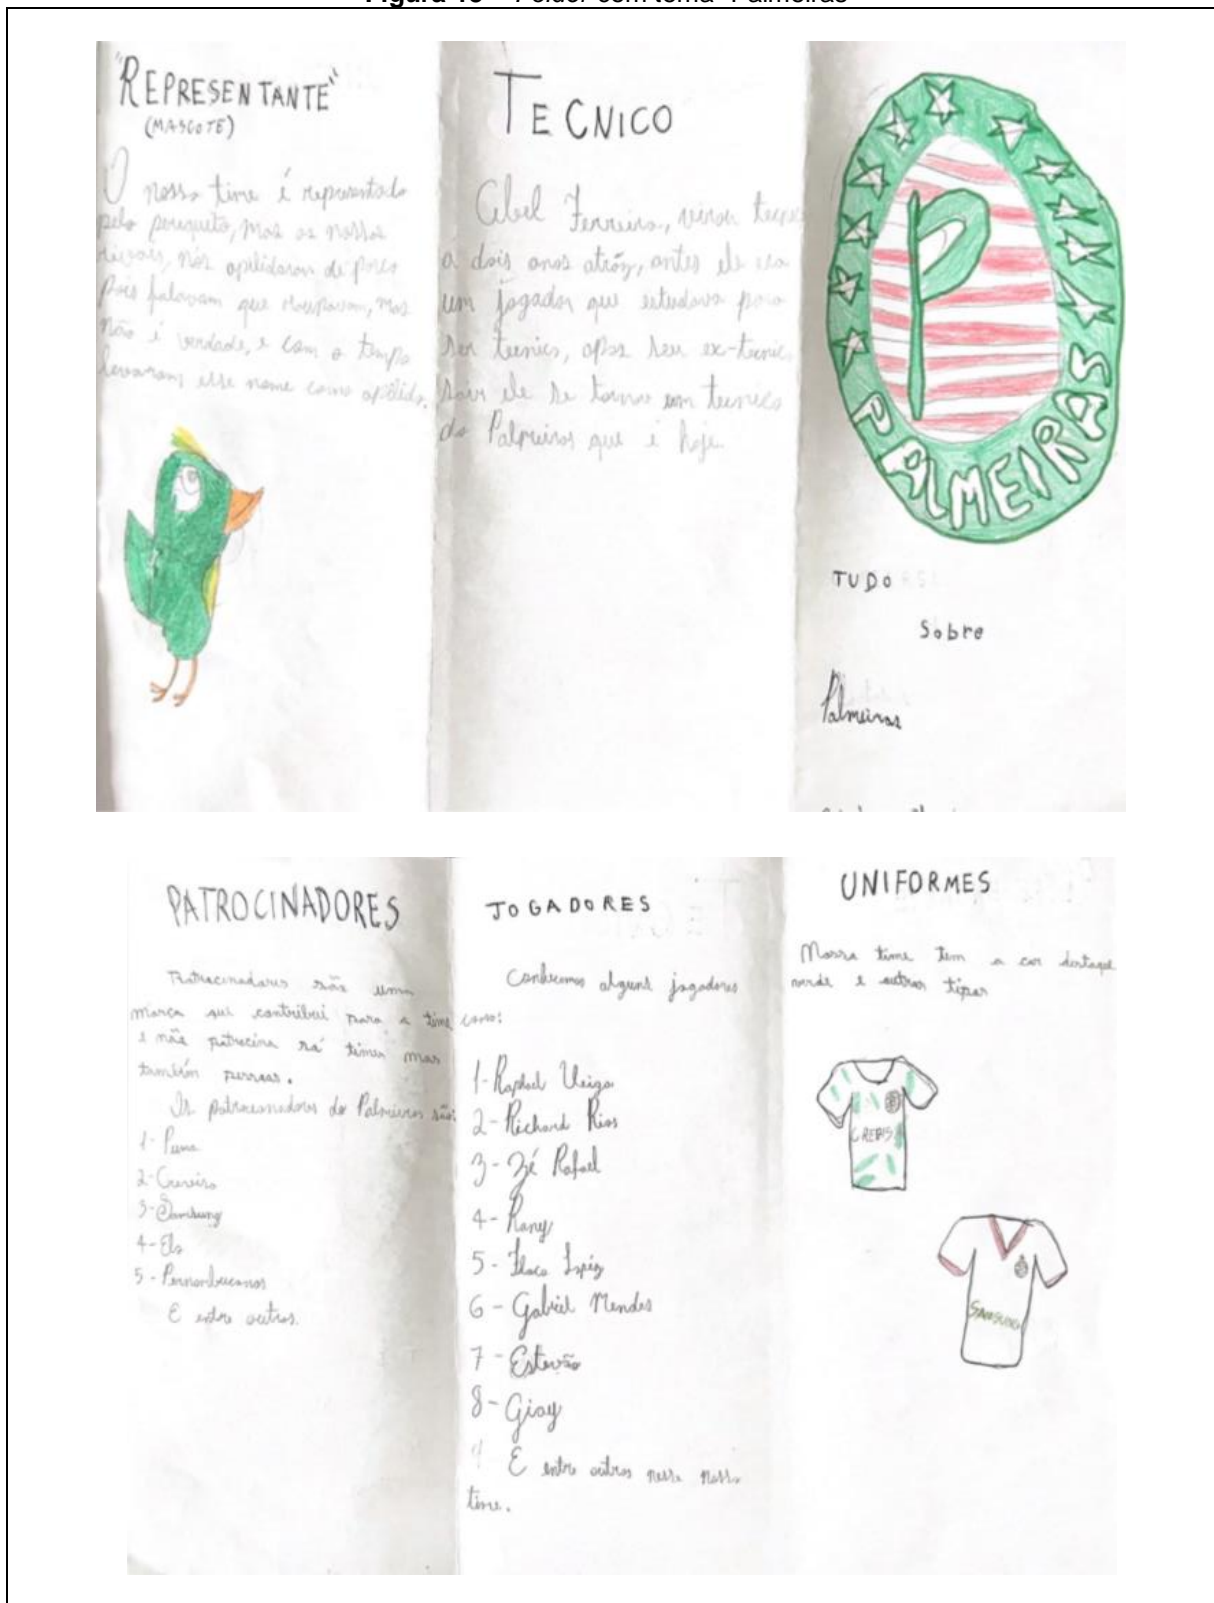 "REPRESENTANTE"
(MASCOTE)
O nosso time é representado
pelo periquito, mas os nossos
rivais, nós apilidaram de porco
Pois falavam que mas
não é verdade, e com o tempo
levaram esse nome como apelido.
TECNICO
Abel Ferreira, virou
á dois anos atráz, antes ele era
um jogador que estudava para
ser tecnico, apos seu ex-tecnic
sair ele se tornou um tecnico
do Palmeiras que é hoje.
PALMEIRAS
P
TUDO
Sobre
Palmeiras
PATROCINADORES
Patrocinadores são uma
marca que contribui para o time
e não patrocina só times mas
também pessoas.
Os patrocinadores do Palmeiras são:
1- Puma
2- 
3- Samsung
4- Elo
5 - Pernambucanas
E entre outros.
JOGADORES
Conhecemos alguns jogadores
como:
1- Raphael Veiga
2- Richard Rios
3- Zé Rafael
4- Rony
5- Flaco Lopéz
6- Gabriel Mendes
7- Estevão
8- Giay
E entre outros nesse nosso
time.
UNIFORMES
Nosso time tem a cor destaque
verde e outros tipos
CREFISA
SAMSUNG